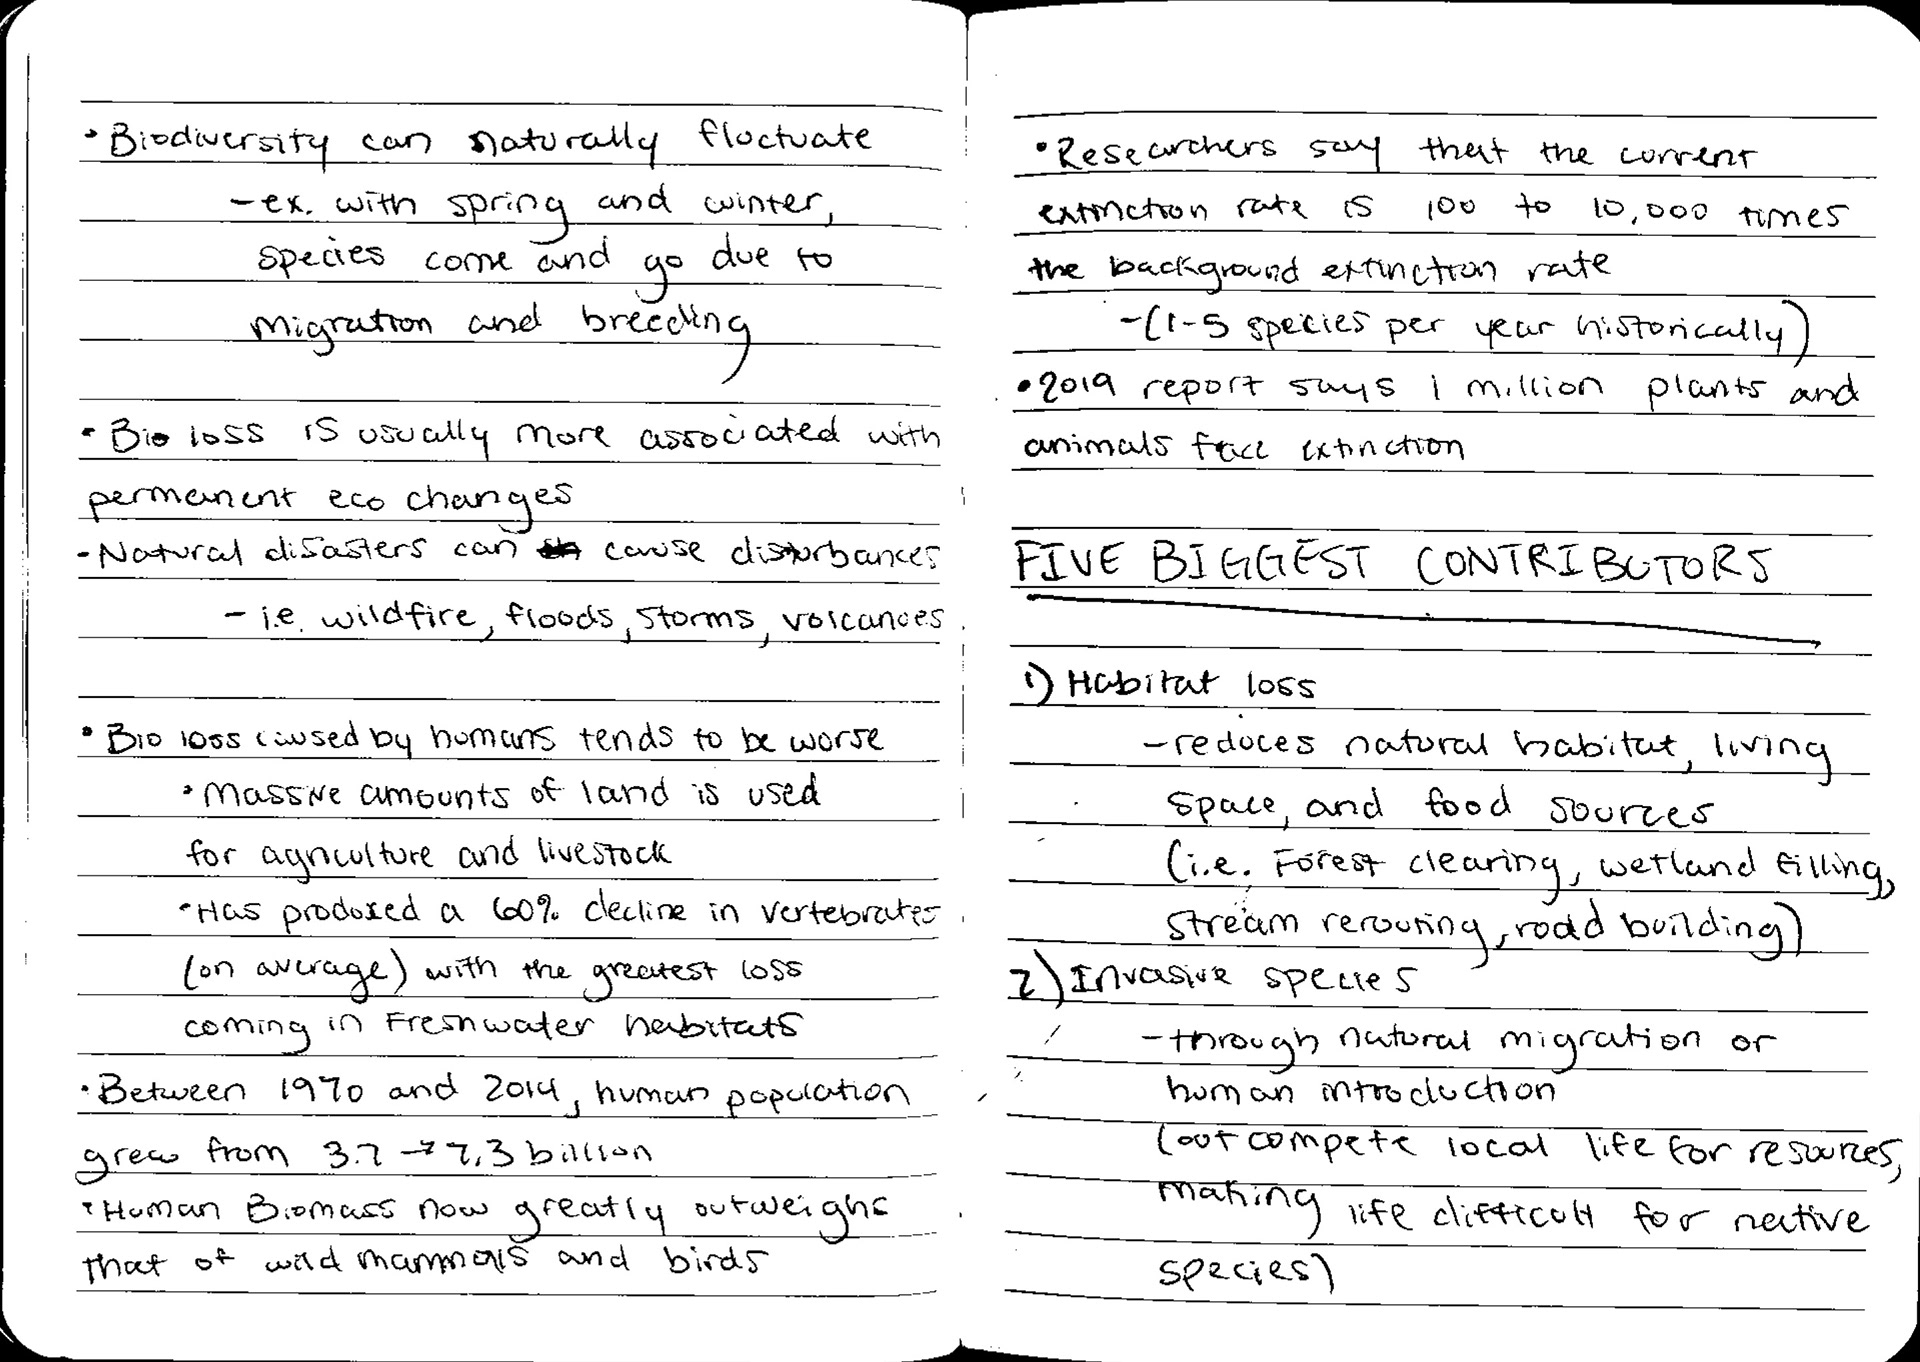 • Biodiversity can naturally fluctuate
- ex. with spring and winter,
species come and go due to
migration and breeding
• Bio loss is usually more associated with
permanent eco changes
- Natural disasters can cause disturbances
- i.e. wildfire, floods, storms, volcanoes
• Bio loss caused by humans tends to be worse
• Massive amounts of land is used
for agriculture and livestock
• Has produced a 60% decline in vertebrates
(on average) with the greatest loss
coming in Freshwater habitats
• Between 1970 and 2014, human population
grew from 3.7 → 7.3 billion
• Human Biomass now greatly outweighs
that of wild mammals and birds
• Researchers say that the current
extinction rate is 100 to 10,000 times
the background extinction rate
- (1-5 species per year historically)
• 2019 report says 1 million plants and
animals face extinction
FIVE BIGGEST CONTRIBUTORS
1) Habitat loss
- reduces natural habitat, living
space, and food sources
(i.e. Forest clearing, wetland filling,
stream rerouting, road building)
2) Invasive species
- through natural migration or
human introduction
(outcompete local life for resources,
making life difficult for native
species)